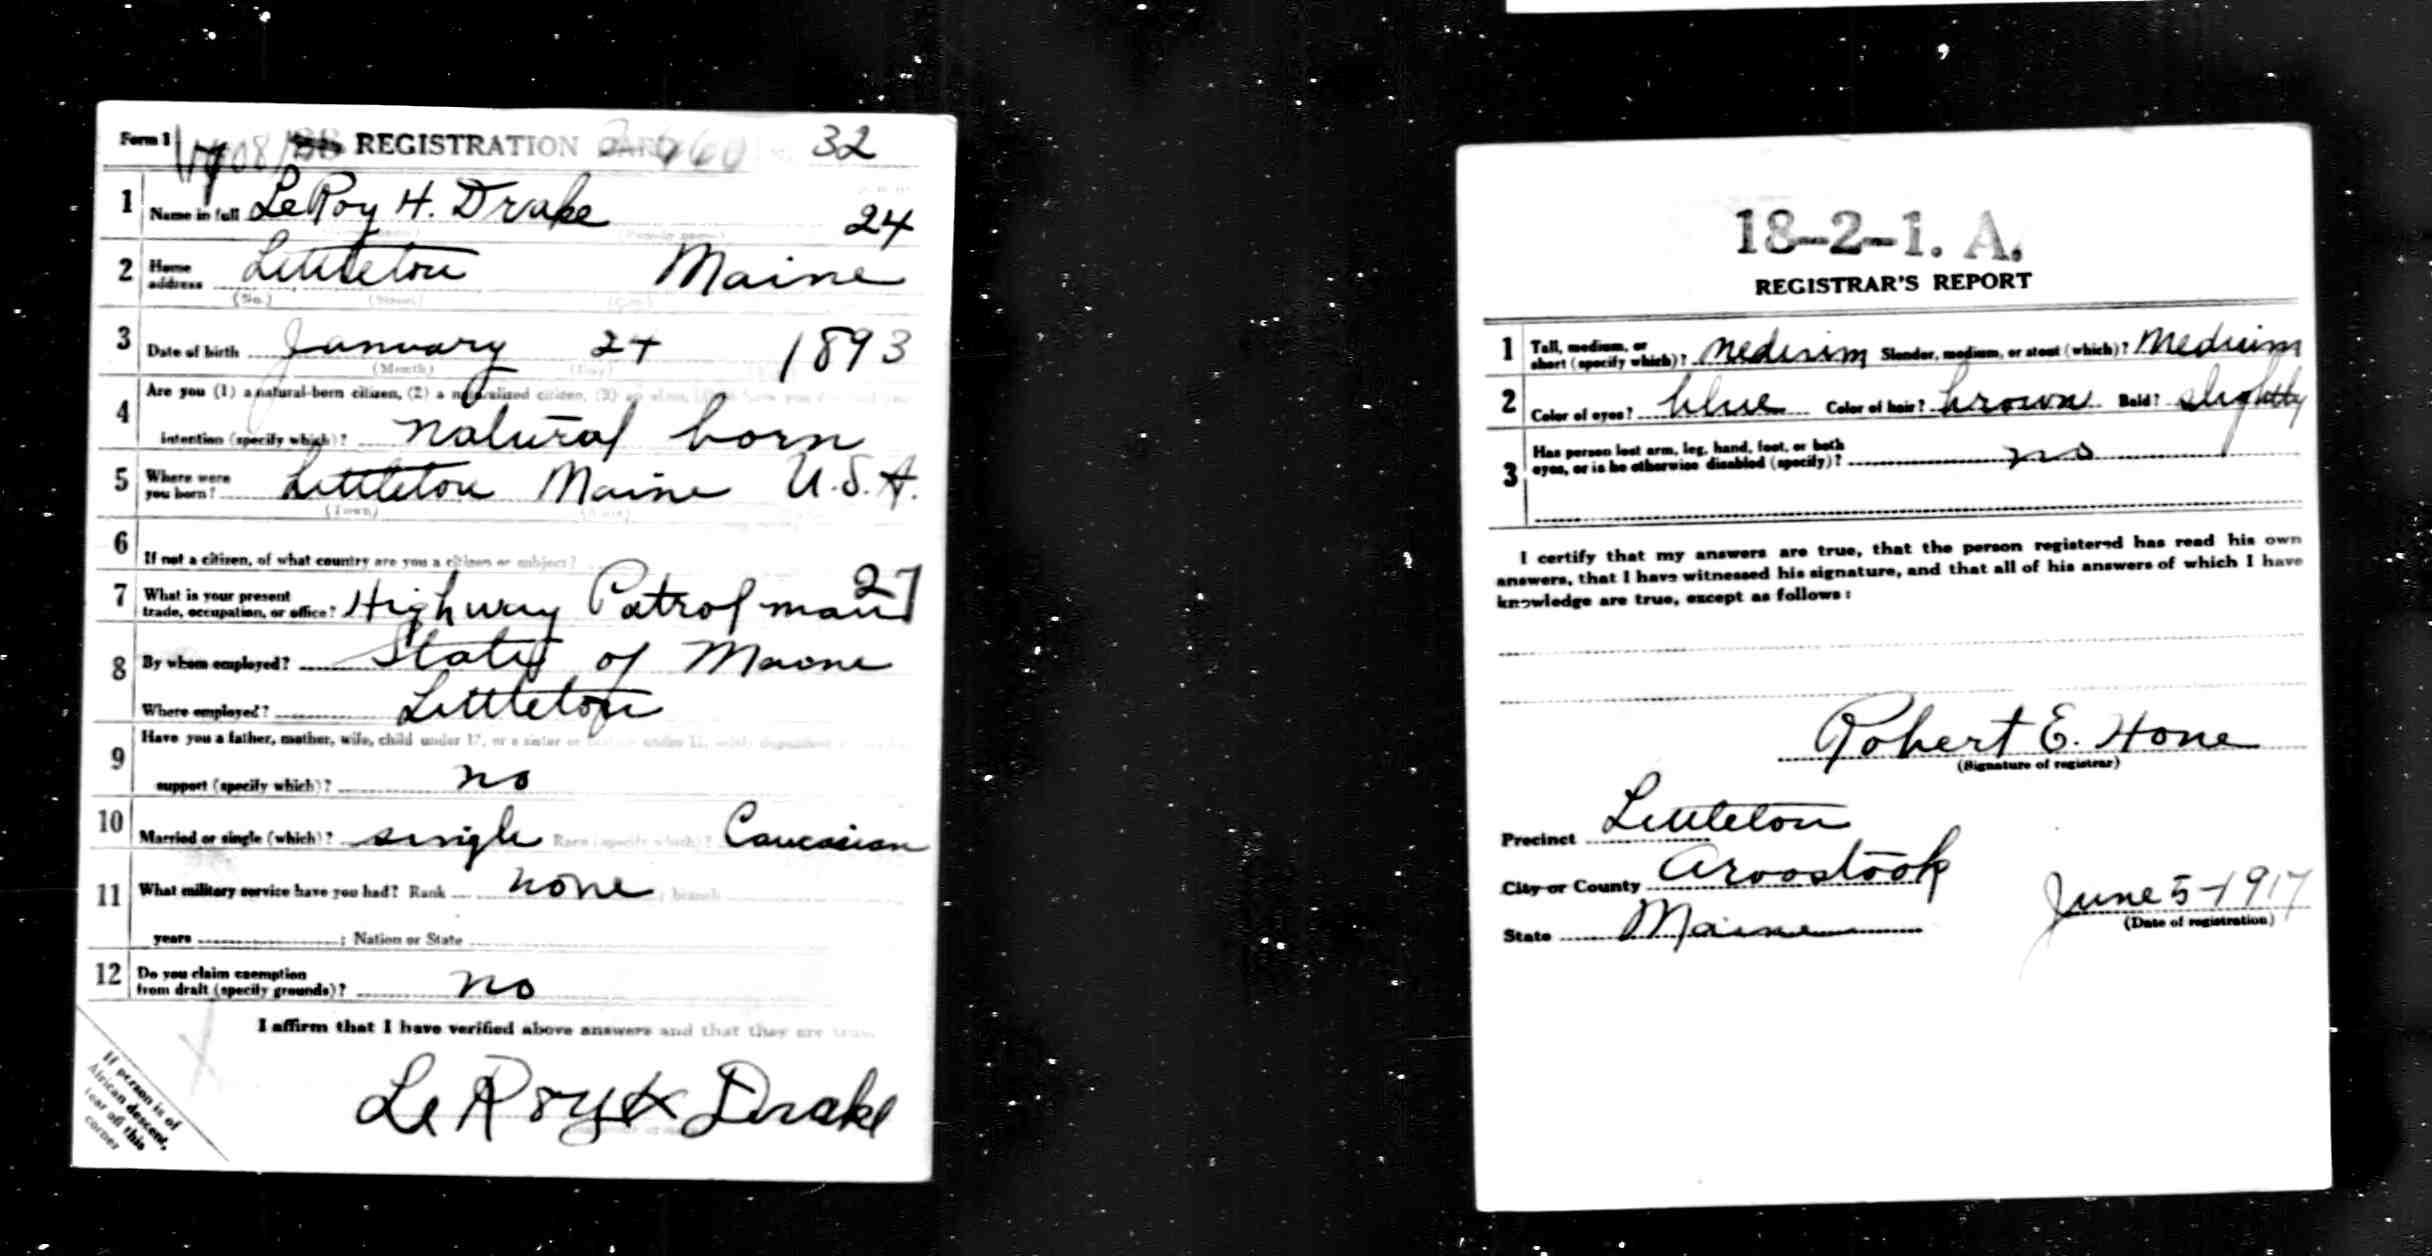 Form 1 REGISTRATION CARD 32
1 Name in full LeRoy H. Drake 24
2 Home address Littleton Maine
(No.) (Street) (City)
3 Date of birth January 24 1893
(Month) (Day)
4 Are you (1) a natural-born citizen, (2) a naturalized citizen, (3) an alien,
intention (specify which)? natural born
5 Where were you born? Littleton Maine U.S.A.
(Town) (State)
6 If not a citizen, of what country are you a citizen or subject?
7 What is your present trade, occupation, or office? Highway Patrolman 27
8 By whom employed? State of Maine
Where employed? Littleton
9 Have you a father, mother, wife, child under 12, or a sister or brother under 12,
support (specify which)? no
10 Married or single (which)? single Race (specify which)? Caucasian
11 What military service have you had? Rank none ; branch
years ; Nation or State
12 Do you claim exemption from draft (specify grounds)? no
I affirm that I have verified above answers and that they are true.
LeRoy H Drake
If person is of
African descent,
tear off this
corner
18-2-1. A.
REGISTRAR'S REPORT
1 Tall, medium, or short (specify which)? Medium Slender, medium, or stout (which)? Medium
2 Color of eyes? blue Color of hair? brown Bald? slightly
3 Has person lost arm, leg, hand, foot, or both eyes, or is he otherwise disabled (specify)? no
I certify that my answers are true, that the person registered has read his own
answers, that I have witnessed his signature, and that all of his answers of which I have
knowledge are true, except as follows:
Robert E. Hone
(Signature of registrar)
Precinct Littleton
City or County Aroostook
State Maine
June 5-1917
(Date of registration)